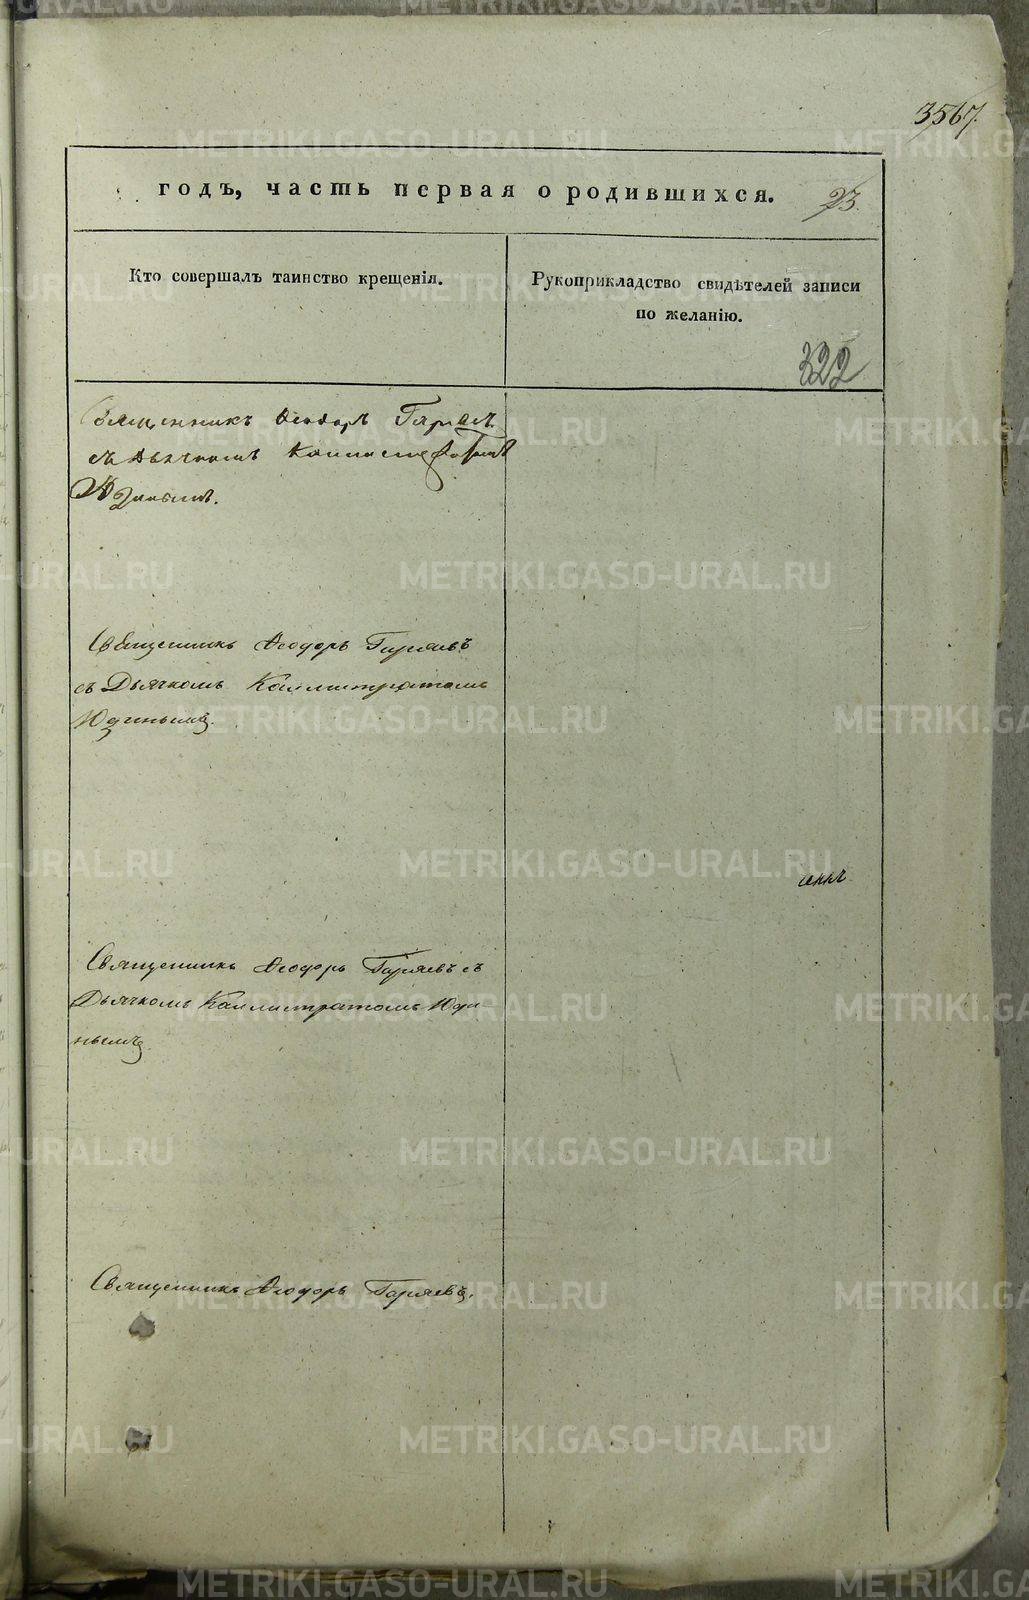 3567.
годъ, часть первая о родившихся. 23.
Кто совершалъ таинство крещенія.
Рукоприкладство свидѣтелей записи
по желанію.
322
Священникъ Ѳеодоръ Гаряевъ
съ Дьячкомъ Каллистратомъ
Юдинымъ.
Священникъ Ѳеодоръ Гаряевъ
съ Дьячкомъ Каллистратомъ
Юдинымъ.
Священникъ Ѳеодоръ Гаряевъ съ
Дьячкомъ Каллистратомъ Юди
нымъ.
Священникъ Ѳеодоръ Гаряевъ.
METRIKI.GASO-URAL.RU